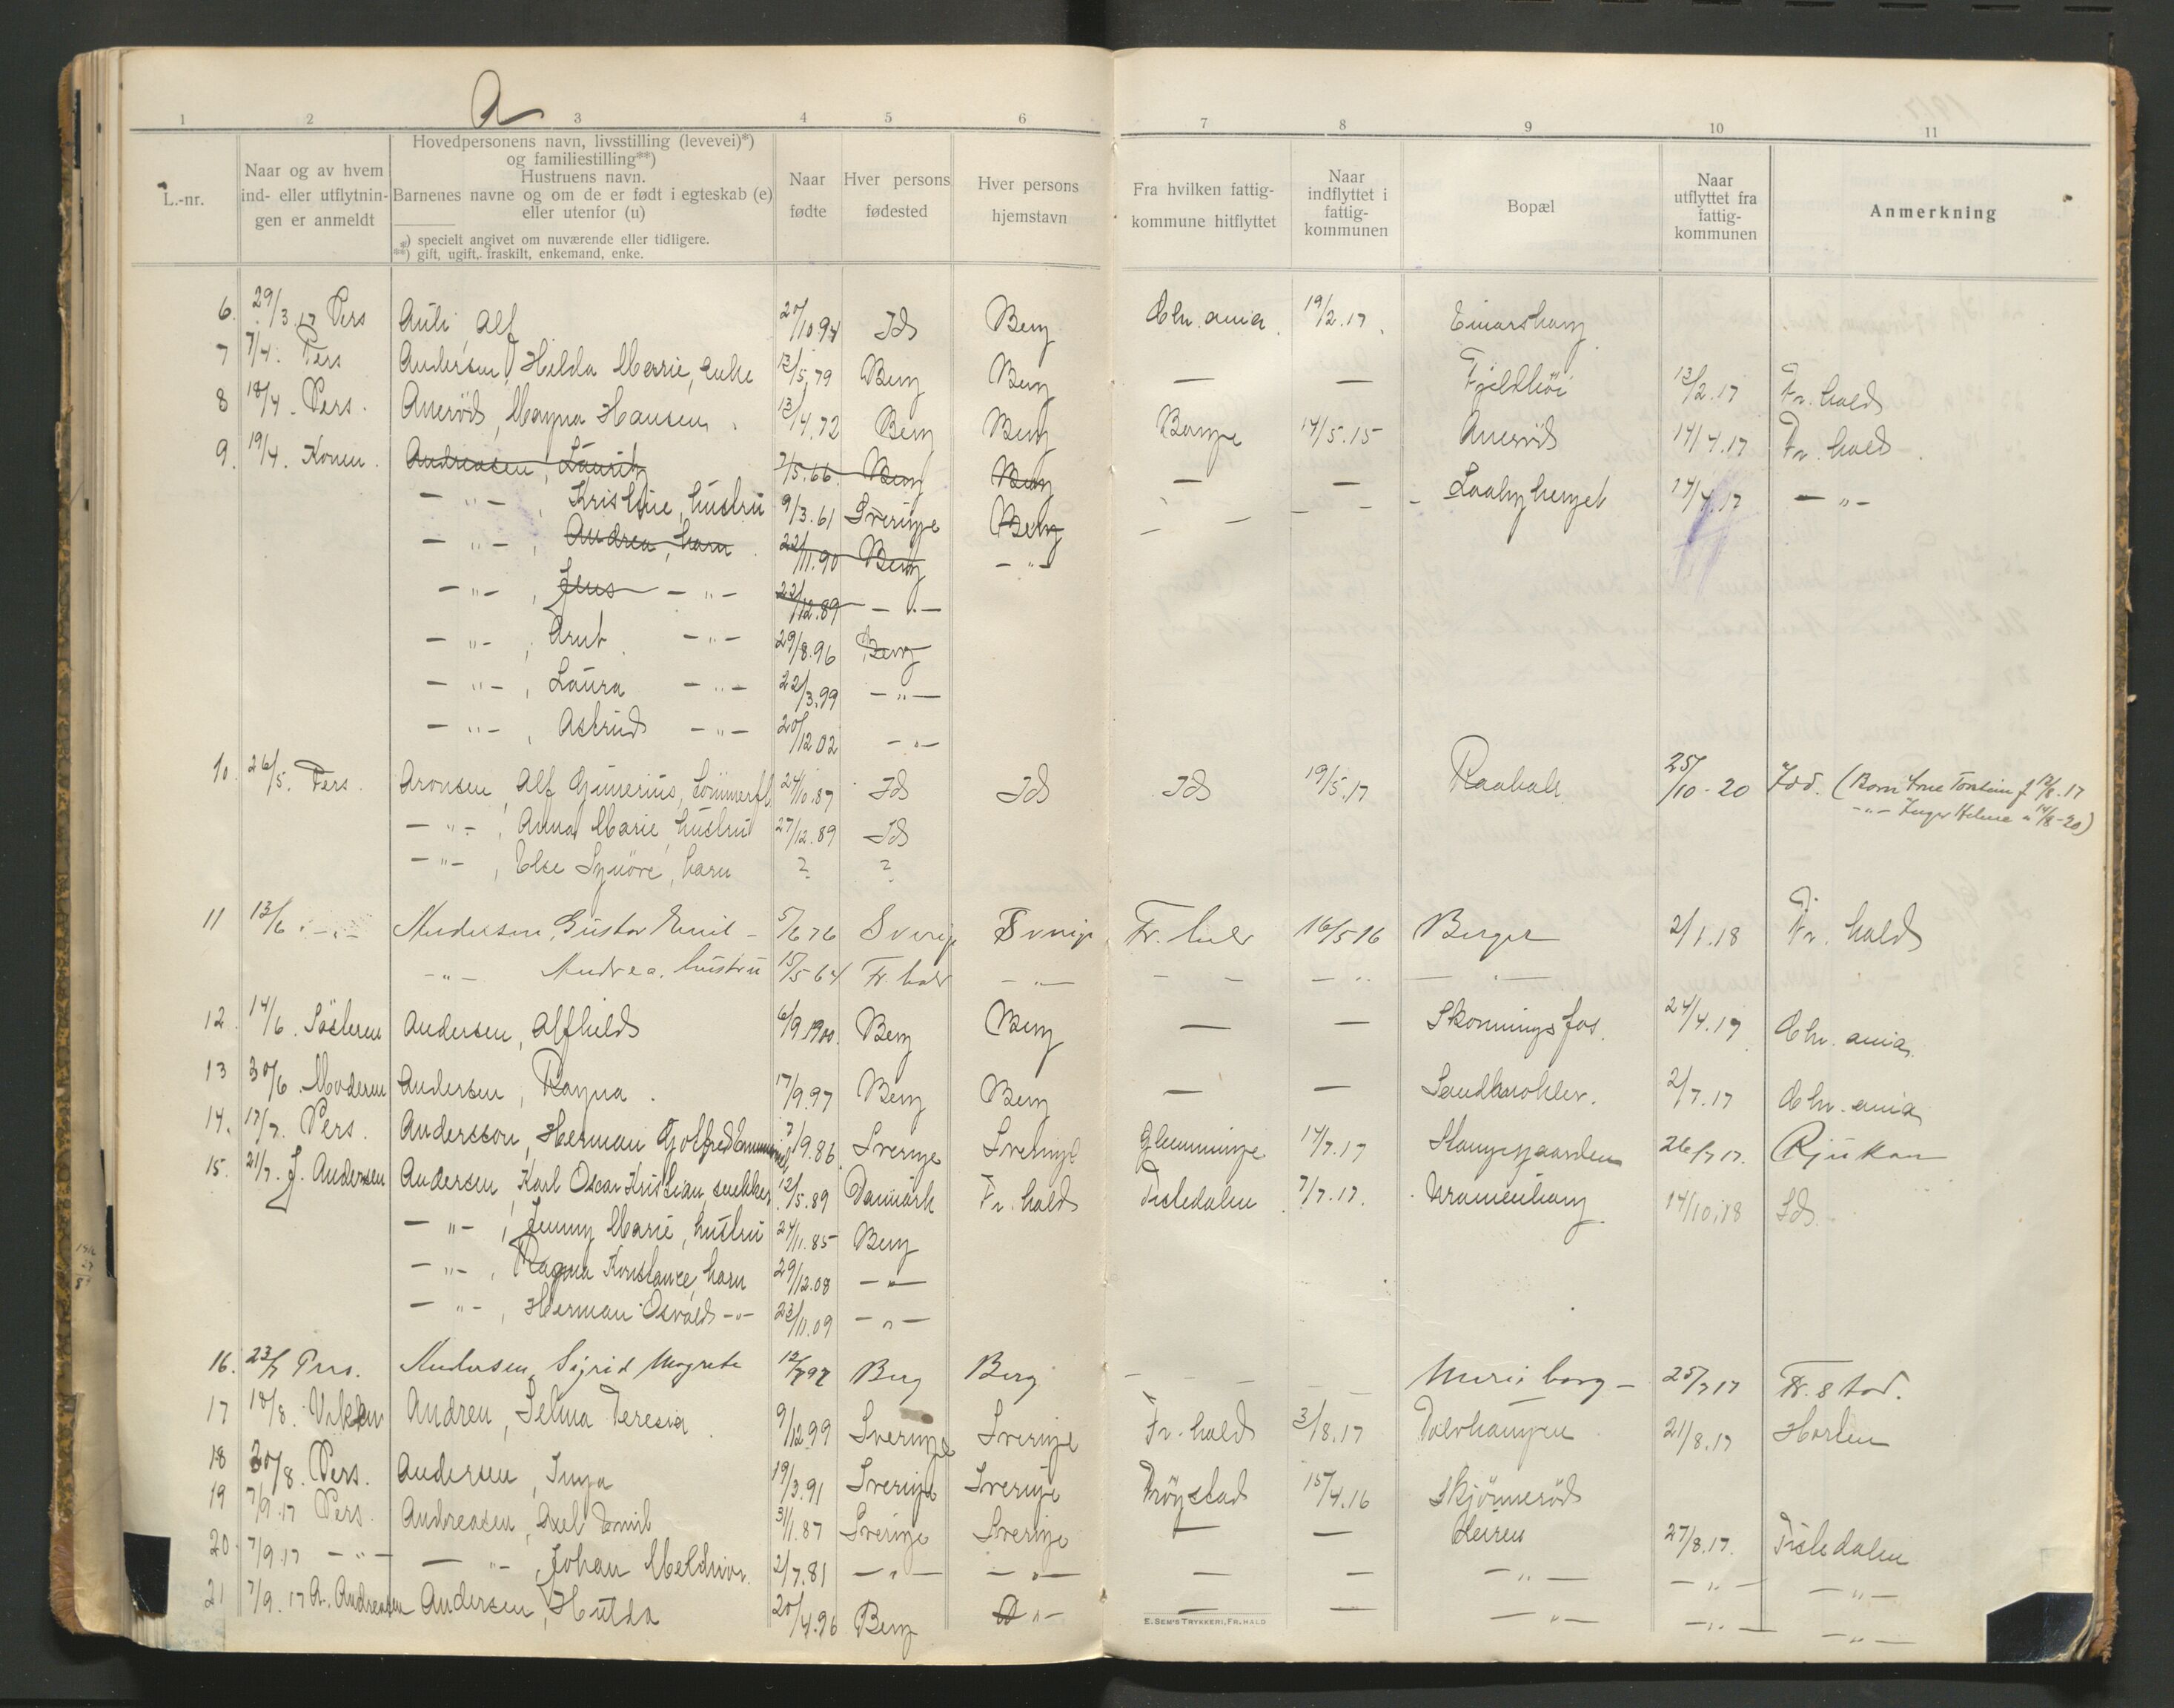 A
1 2 3 4 5 6 7 8 9 10 11
L.-nr.
Naar og av hvem
ind- eller utflytnin-
gen er anmeldt
Hovedpersonens navn, livsstilling (levevei)*)
og familiestilling**)
Hustruens navn.
Barnenes navne og om de er født i egteskab (e)
eller utenfor (u)
*) specielt angivet om nuværende eller tidligere.
**) gift, ugift, fraskilt, enkemand, enke.
Naar
fødte
Hver persons
fødested
Hver persons
hjemstavn
Fra hvilken fattig-
kommune hitflyttet
Naar
indflyttet i
fattig-
kommunen
Bopæl
Naar
utflyttet fra
fattig-
kommunen
Anmerkning
6. 29/3.17 Pers Auli Alf 20/10 94 Ids Berg Chr. ania. 19/2.17. Einarshaug
7 7/4. Pers Andersen, Hilda Marie, enke 12/5.79 Berg Berg — — Fjeldhöi 13/2.17 Fr. hald
8 18/4. Pers. Anerød, Magna Hansen. 13/4.72 Berg Berg Borge 14/5.15 Anerød 14/4.17 Fr. hald.
9. 19/4. Konen. Andreasen, Laurits 2/5.66. Berg Berg — — 17/4.17 — " —
— " — , Kristine, hustru 9/3.61 Sverige Berg
— " — , Andrea, barn 22/11.90 Berg — " —
— " — , Jens — " — 22/12.89 — " —
— " — , Arnt — " — 29/8.96 Berg
— " — , Laura — " — 22/3.99 — " —
— " — , Astrid — " — 20/12 02 — " —
10. 26/5. Pers. Aronsen, Alf Gunerius, 24/10.87 Ids Ids Ids 19/5.17 25/10-20 Idd. (Born Arne Torstein f 12/8.17
— " — Inger Helene " 14/8-20)
— " — , Anna Marie, hustru 27/12.89 Ids
— " — , Else Synöve, barn ? ?
11 13/6 — " — Andersen, Gustav Emil — 5/6 76 Sverige Sverige Fr. hald 16/5 16 Berger 2/1.18 Fr. hald
— " — Andrea, hustru 15/5 64 Fr. hald — " —
12. 14/6. Søsteren Andersen, Alfhild 6/9.1900. Berg Berg — — Skonningsfos. 24/4.17 Chr. ania.
13 30/6. Moderen Andersen, Ragna. 17/9.97 Berg Berg — — 2/7.17 Chr. ania
14. 17/7. Pers. Andersson, Herman Gotfred Emanuel, 7/9.86. Sverige Sverige Glemminge 14/7.17 Stangegaarden 26/7 17. Rjukan
15. 21/7. J. Andersen Andersen, Karl Oscar Kristian, snekker 12/5.89 Danmark Fr. hald Tistedalen 7/7.17. 14/10.18 Ids.
— " — , Jenny Marie, hustru 24/11.85 Berg
— " — , Ragna Konstance, barn 29/12.08 — " —
— " — , Herman Osvald — " — 23/11.09 — " —
16. 23/7 Pers. Andersen, Sigrid Magrete 12/7 97 Berg Berg — — — 25/7 17 Fr. stad.
17 18/8. Andren, Selma Teresia. 9/12 99 Sverige Sverige Fr. hald 3/8.17 21/8.17 Horten
18 30/8. Pers. Andersen, Inga 19/3.91 Sverige Sverige Trögstad 15/4.16 Skjönneröd
19 7/9.17 Pers. Andreasen, Axel Emil 3/1.87 Sverige Sverige — — Leiren 27/8.17. Tistedalen
20 7/9.17 — " — — " — , Johan 2/7.81 — " — — " — — — — " — — " — — " —
21 7/9.17 A. Andreasen Andersen, Hulda 20/4.96 Berg — " — — — — " — — " — — " —
E. SEM'S TRYKKERI, FR.HALD